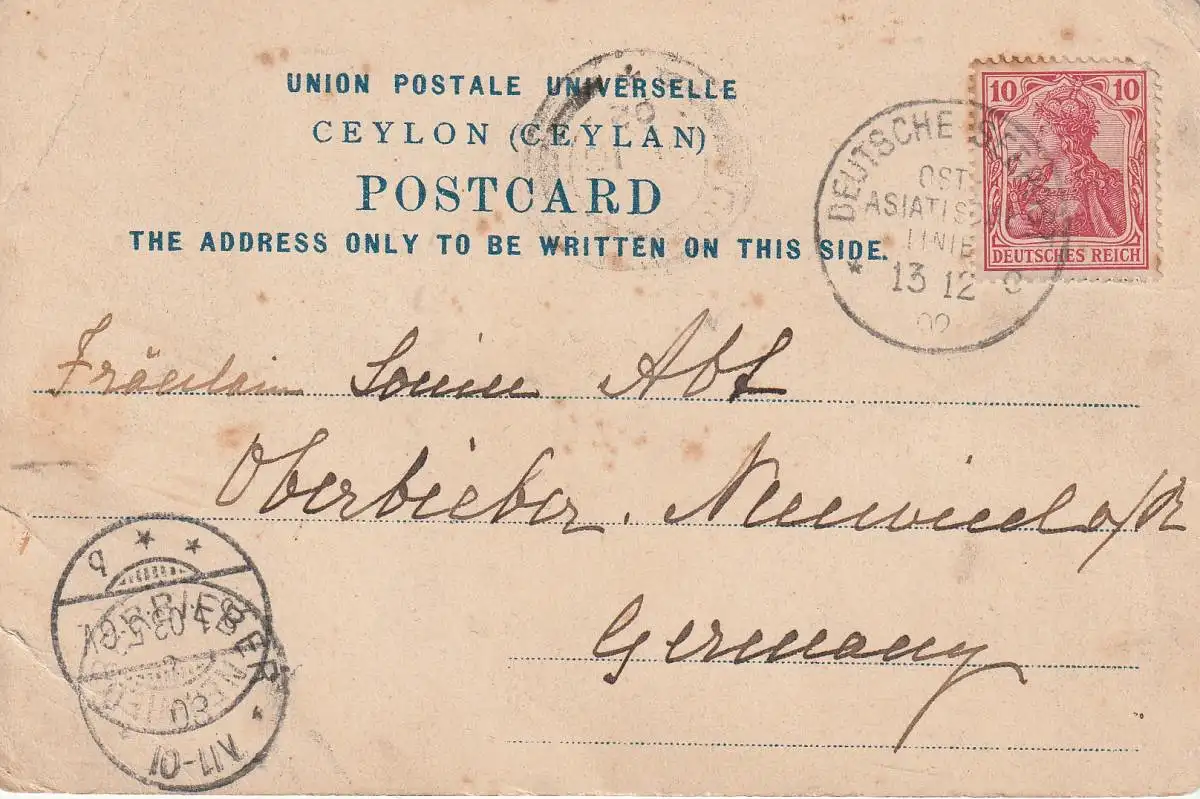 UNION POSTALE UNIVERSELLE
CEYLON (CEYLAN)
POSTCARD
THE ADDRESS ONLY TO BE WRITTEN ON THIS SIDE.
10 10
DEUTSCHES REICH
DEUTSCHE
OST
ASIATISCHE
LINIE
* 13 12 02
Fräulein Louise Abt
Oberbieber. Neuwied a/R
Germany